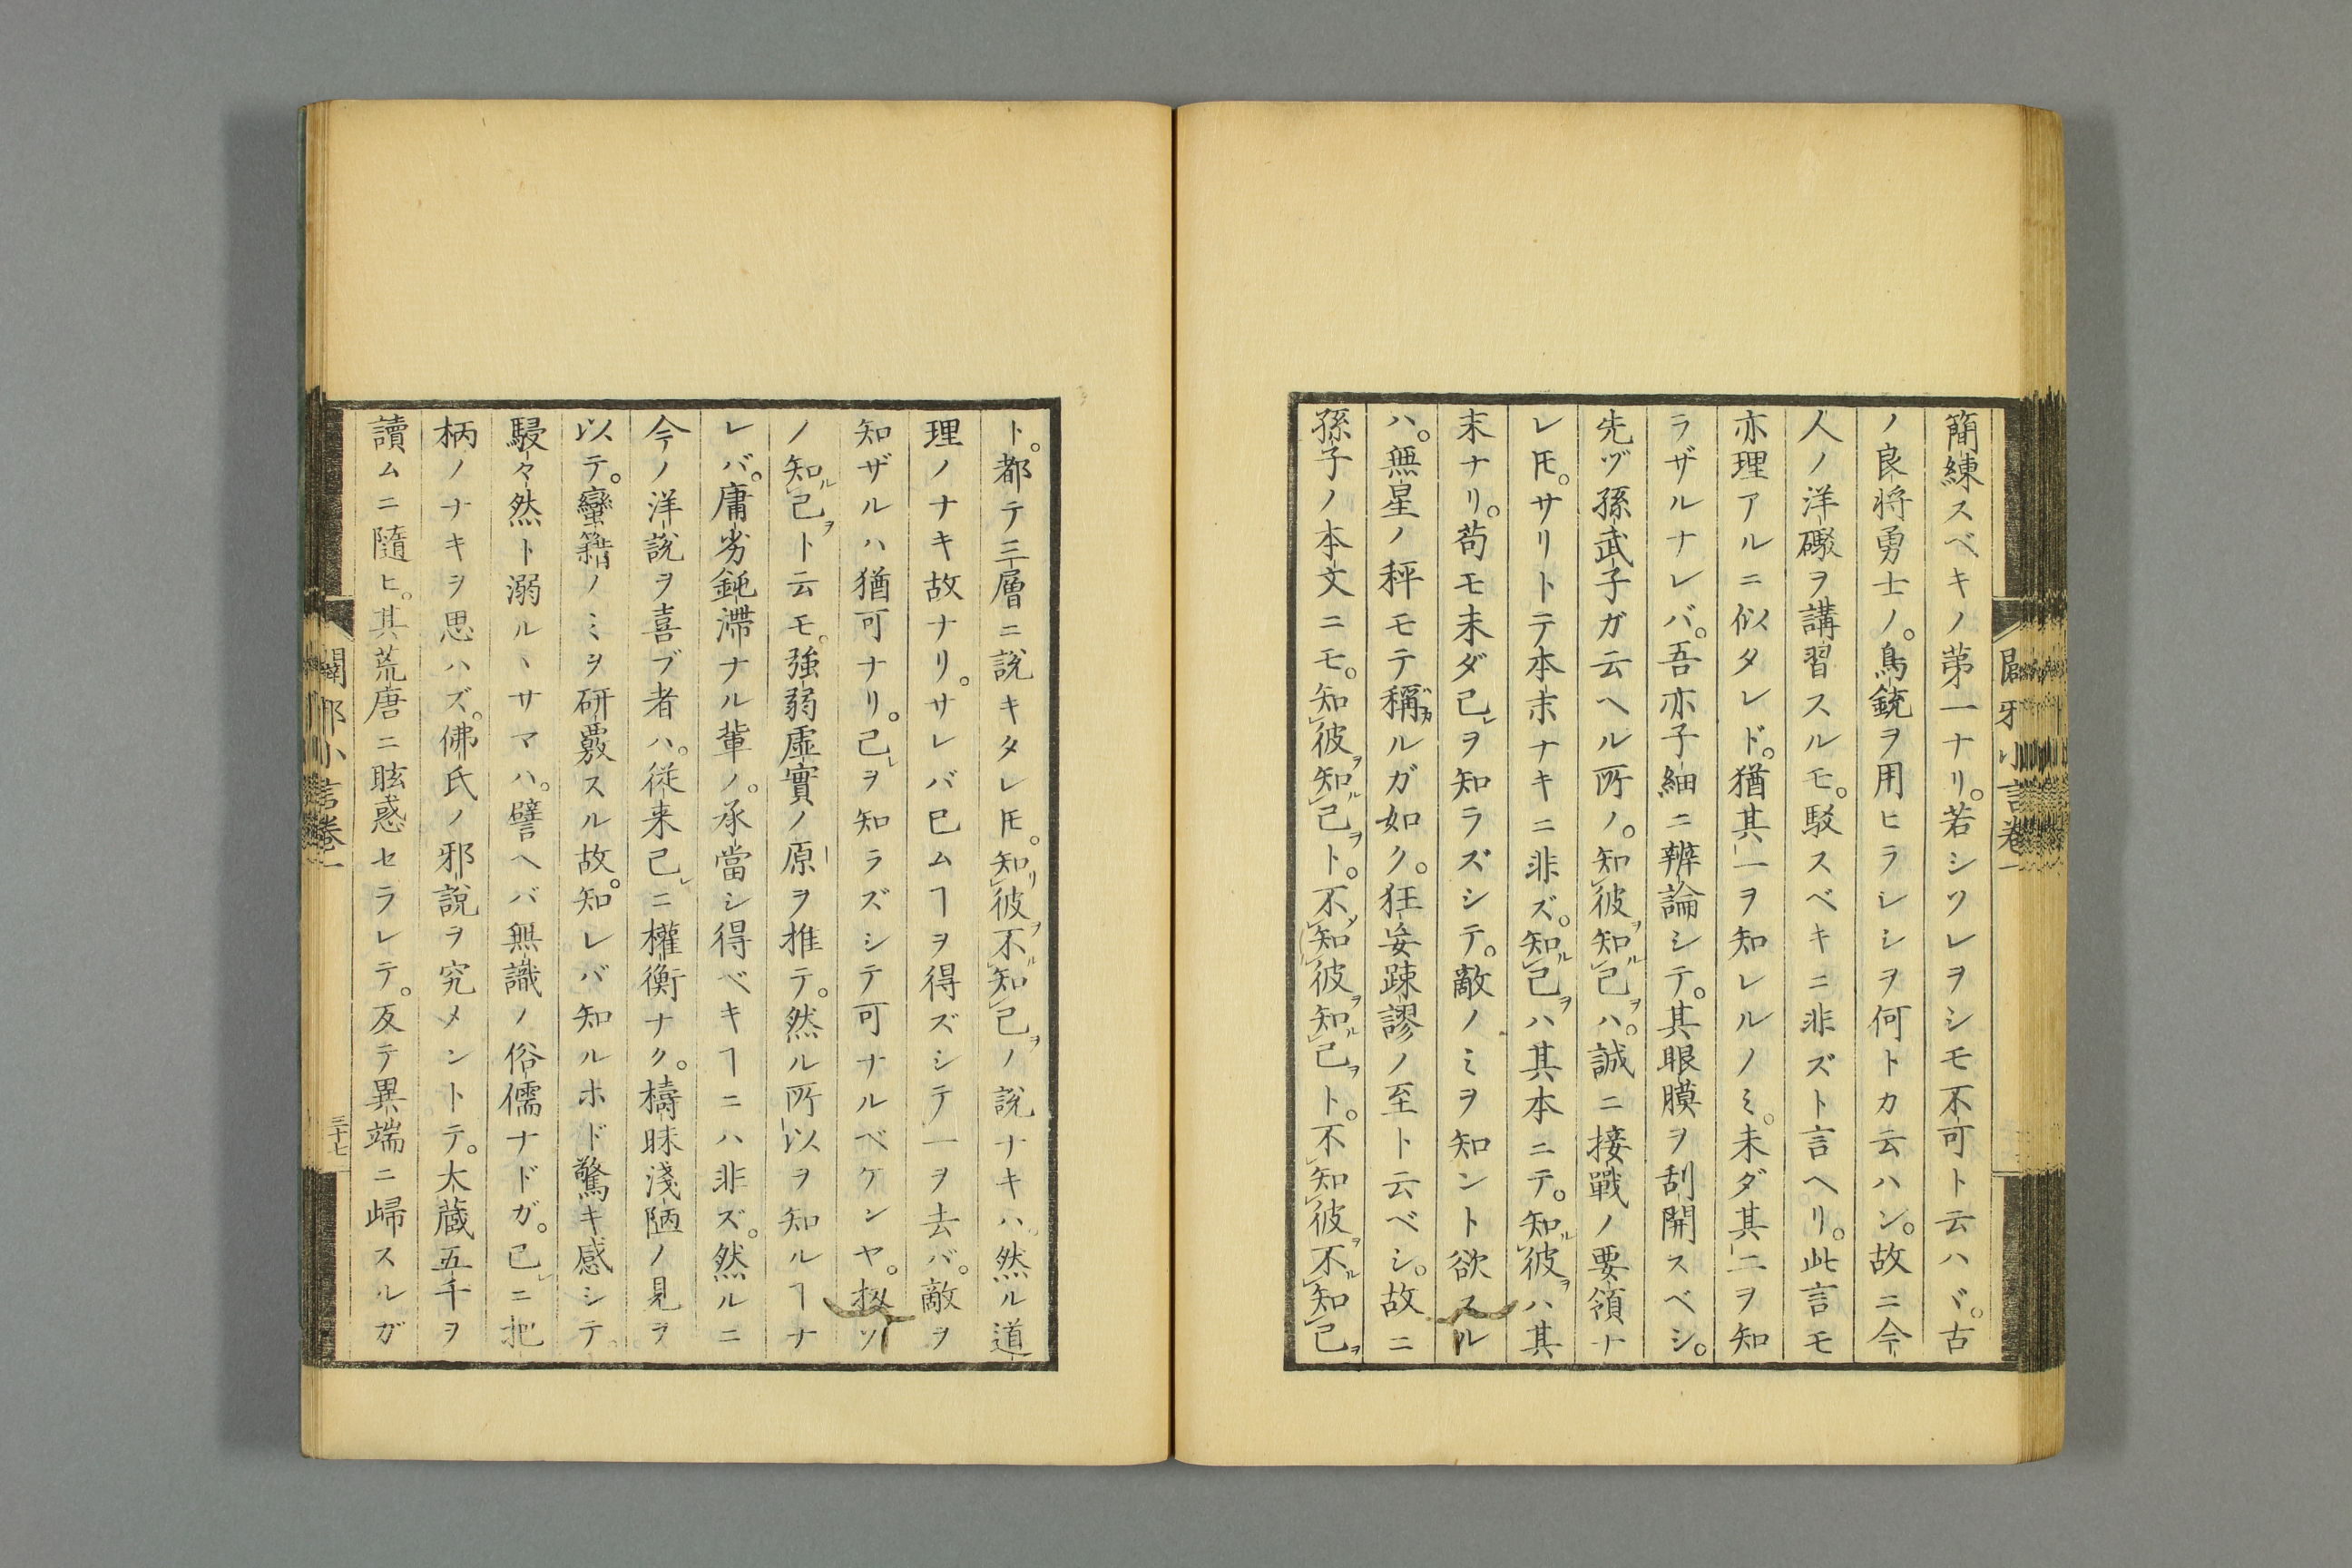 簡練スベキノ第一ナリ。若シソレヲシモ不可ト云ハヾ。古
ノ良将勇士ノ。鳥銃ヲ用ヒラレシヲ何トカ云ハン。故ニ今
人ノ洋礮ヲ講習スルモ。駁スベキニ非ズト言ヘリ。此言モ
亦理アルニ似タレド。猶其一ヲ知レルノミ。未ダ其二ヲ知
ラザルナレバ。吾亦子細ニ辨論シテ。其眼膜ヲ刮開スベシ。
先ヅ孫武子ガ云ヘル所ノ。知彼ヲ知ル己ヲハ。誠ニ接戰ノ要領ナ
レ𪜈。サリトテ本末ナキニ非ズ。知ル己ヲハ其本ニテ。知ル彼ヲハ其
末ナリ。苟モ未ダ己レヲ知ラズシテ。敵ノミヲ知ント欲スル
ハ。無星ノ秤モテ稱ルガ如ク。狂妄踈謬ノ至ト云ベシ。故ニ
孫子ノ本文ニモ。知彼ヲ知ル己ヲト。不知彼ヲ知ル己ヲト。不知彼ヲ不ル知己ヲ
ト。都テ三層ニ説キタレ𪜈。知リ彼ヲ不ル知己ヲノ説ナキハ。然ル道
理ノナキ故ナリ。サレバ已ムヿヲ得ズシテ一ヲ去バ。敵ヲ
知ザルハ猶可ナリ。己レヲ知ラズシテ可ナルベケンヤ。扨ソ
ノ知ル己ヲト云モ。強弱虚實ノ原ヲ推テ。然ル所以ヲ知ルヿナ
レバ。庸劣鈍滯ナル輩ノ。承當シ得ベキヿニハ非ズ。然ルニ
今ノ洋説ヲ喜ブ者ハ。従来己レニ權衡ナク。檮昧淺陋ノ見ヲ
以テ。蠻籍ノミヲ研覈スル故。知レバ知ルホド驚キ感シテ。
駸々然ト溺ルヽサマハ。譬ヘバ無識ノ俗儒ナドガ。己レニ把
柄ノナキヲ思ハズ。佛氏ノ邪説ヲ究メントテ。大蔵五千ヲ
讀ムニ隨ヒ。其荒唐ニ眩惑セラレテ。反テ異端ニ歸スルガ
闢邪小言巻一
三十七